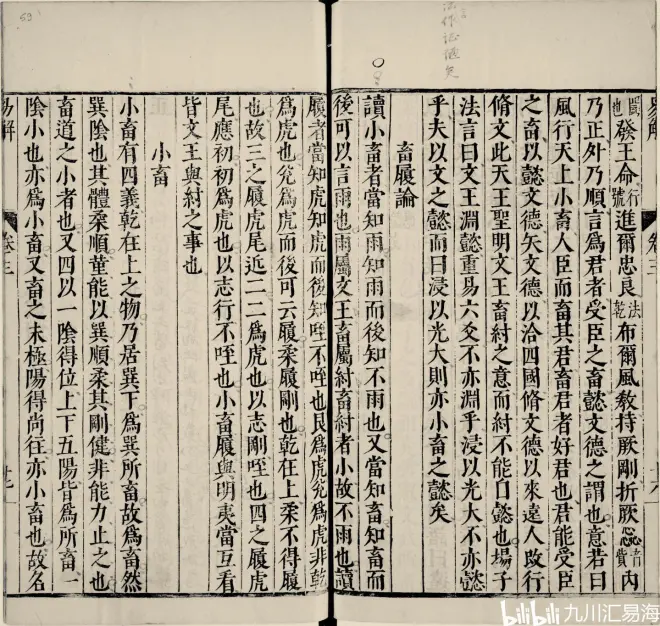 法作法瀍矣
易解
卷三
廿八
盬也發王命行號進爾忠良法乾布爾風敎持厥剛折厥惡者賞内
乃正外乃順言爲君者受臣之畜懿文德之謂也意若曰
風行天上小畜人臣而畜其君畜君者好君也君能受臣
之畜以懿文德矢文德以洽四國脩文德以來遠人改行
脩文此天王聖明文王畜紂之意而紂不能曰懿也塲子
法言曰文王淵懿重易六爻不亦淵乎浸以光大不亦懿
乎夫以文之懿而曰浸以光大則亦小畜之懿矣
畜履論
讀小畜者當知雨知雨而後知不雨也又當知畜知畜而
後可以言雨也雨屬文王畜屬紂畜紂者小故不雨也讀
履者當知虎知虎而後知咥不咥也艮爲虎兊爲虎非乾
爲虎也兊爲虎而後可云履柔履剛也乾在上柔不得履
也故三之履虎尾近二二爲虎也以志剛咥也四之履虎
尾應初初爲虎也以志行不咥也小畜履與明夷當互看
皆文王與紂之事也
小畜
小畜有四義乾在上之物乃居巽下爲巽所畜故爲畜然
巽陰也其體柔順董能以巽順柔其剛健非能力止之也
畜道之小者也又四以一陰得位上下五陽皆爲所畜一
陰小也亦爲小畜又畜之未極陽得尚往亦小畜也故名
易解
卷三
廿九
59
bilibili 九川汇易海